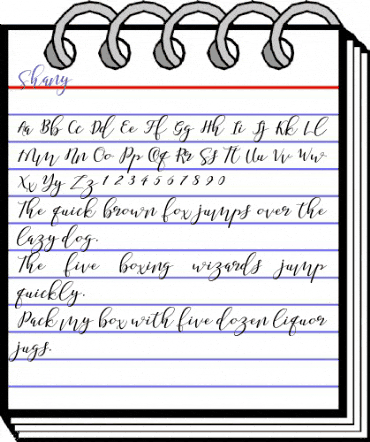 Shany
Aa Bb Cc Dd Ee Ff Gg Hh Ii Jj Kk Ll
Mm Nn Oo Pp Qq Rr Ss Tt Uu Vv Ww
Xx Yy Zz 1 2 3 4 5 6 7 8 9 0
The quick brown fox jumps over the
lazy dog.
The five boxing wizards jump
quickly.
Pack my box with five dozen liquor
jugs.